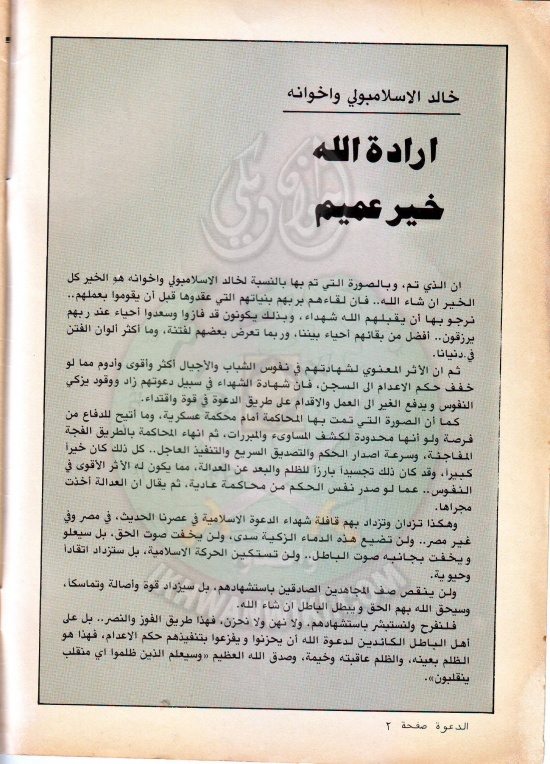 خالد الاسلامبولي واخوانه
ارادة الله
خير عميم
ان الذي تم، وبالصورة التي تم بها بالنسبة لخالد الاسلامبولي واخوانه هو الخير كل
الخير ان شاء الله.. فان لقاءهم بربهم بنياتهم التي عقدوها قبل أن يقوموا بعملهم..
نرجو بها أن يقبلهم الله شهداء، وبذلك يكونون قد فازوا وسعدوا أحياء عند ربهم
يرزقون.. أفضل من بقائهم أحياء بيننا، وربما تعرض بعضهم لفتنة، وما أكثر ألوان الفتن
في دنيانا.
ثم ان الأثر المعنوي لشهادتهم في نفوس الشباب والأجيال أكثر وأقوى وأدوم مما لو
خفف حكم الاعدام الى السجن، فان شهادة الشهداء في سبيل دعوتهم زاد ووقود يزكي
النفوس ويدفع الغير الى العمل والاقدام على طريق الدعوة في قوة واقتداء.
كما أن الصورة التي تمت بها المحاكمة أمام محكمة عسكرية، وما أتيح للدفاع من
فرصة ولو أنها محدودة لكشف المساوىء والمبررات، ثم انهاء المحاكمة بالطريق الفجة
المفاجئة، وسرعة اصدار الحكم والتصديق السريع والتنفيذ العاجل.. كل ذلك كان خيراً
كبيراً، وقد كان ذلك تجسيداً بارزاً للظلم والبعد عن العدالة، مما يكون له الأثر الأقوى في
النفوس.. عما لو صدر نفس الحكم من محاكمة عادية، ثم يقال ان العدالة أخذت
مجراها.
وهكذا تزدان وتزداد بهم قافلة شهداء الدعوة الاسلامية في عصرنا الحديث، في مصر وفي
غير مصر.. ولن تضيع هذه الدماء الزكية سدى، ولن يخفت صوت الحق، بل سيعلو
ويخفت بجانبه صوت الباطل.. ولن تستكين الحركة الاسلامية، بل ستزداد اتقاداً
وحيوية.
ولن ينقص صف المجاهدين الصادقين باستشهادهم، بل سيزداد قوة وأصالة وتماسكا،
وسيحق الله بهم الحق ويبطل الباطل ان شاء الله.
فلنفرح ولنستبشر باستشهادهم، ولا نهن ولا نحزن، فهذا طريق الفوز والنصر.. بل على
أهل الباطل الكائدين لدعوة الله أن يحزنوا ويفزعوا بتنفيذهم حكم الاعدام، فهذا هو
الظلم بعينه، والظلم عاقبته وخيمة، وصدق الله العظيم «وسيعلم الذين ظلموا اي منقلب
ينقلبون».
الدعوة صفحة ٢